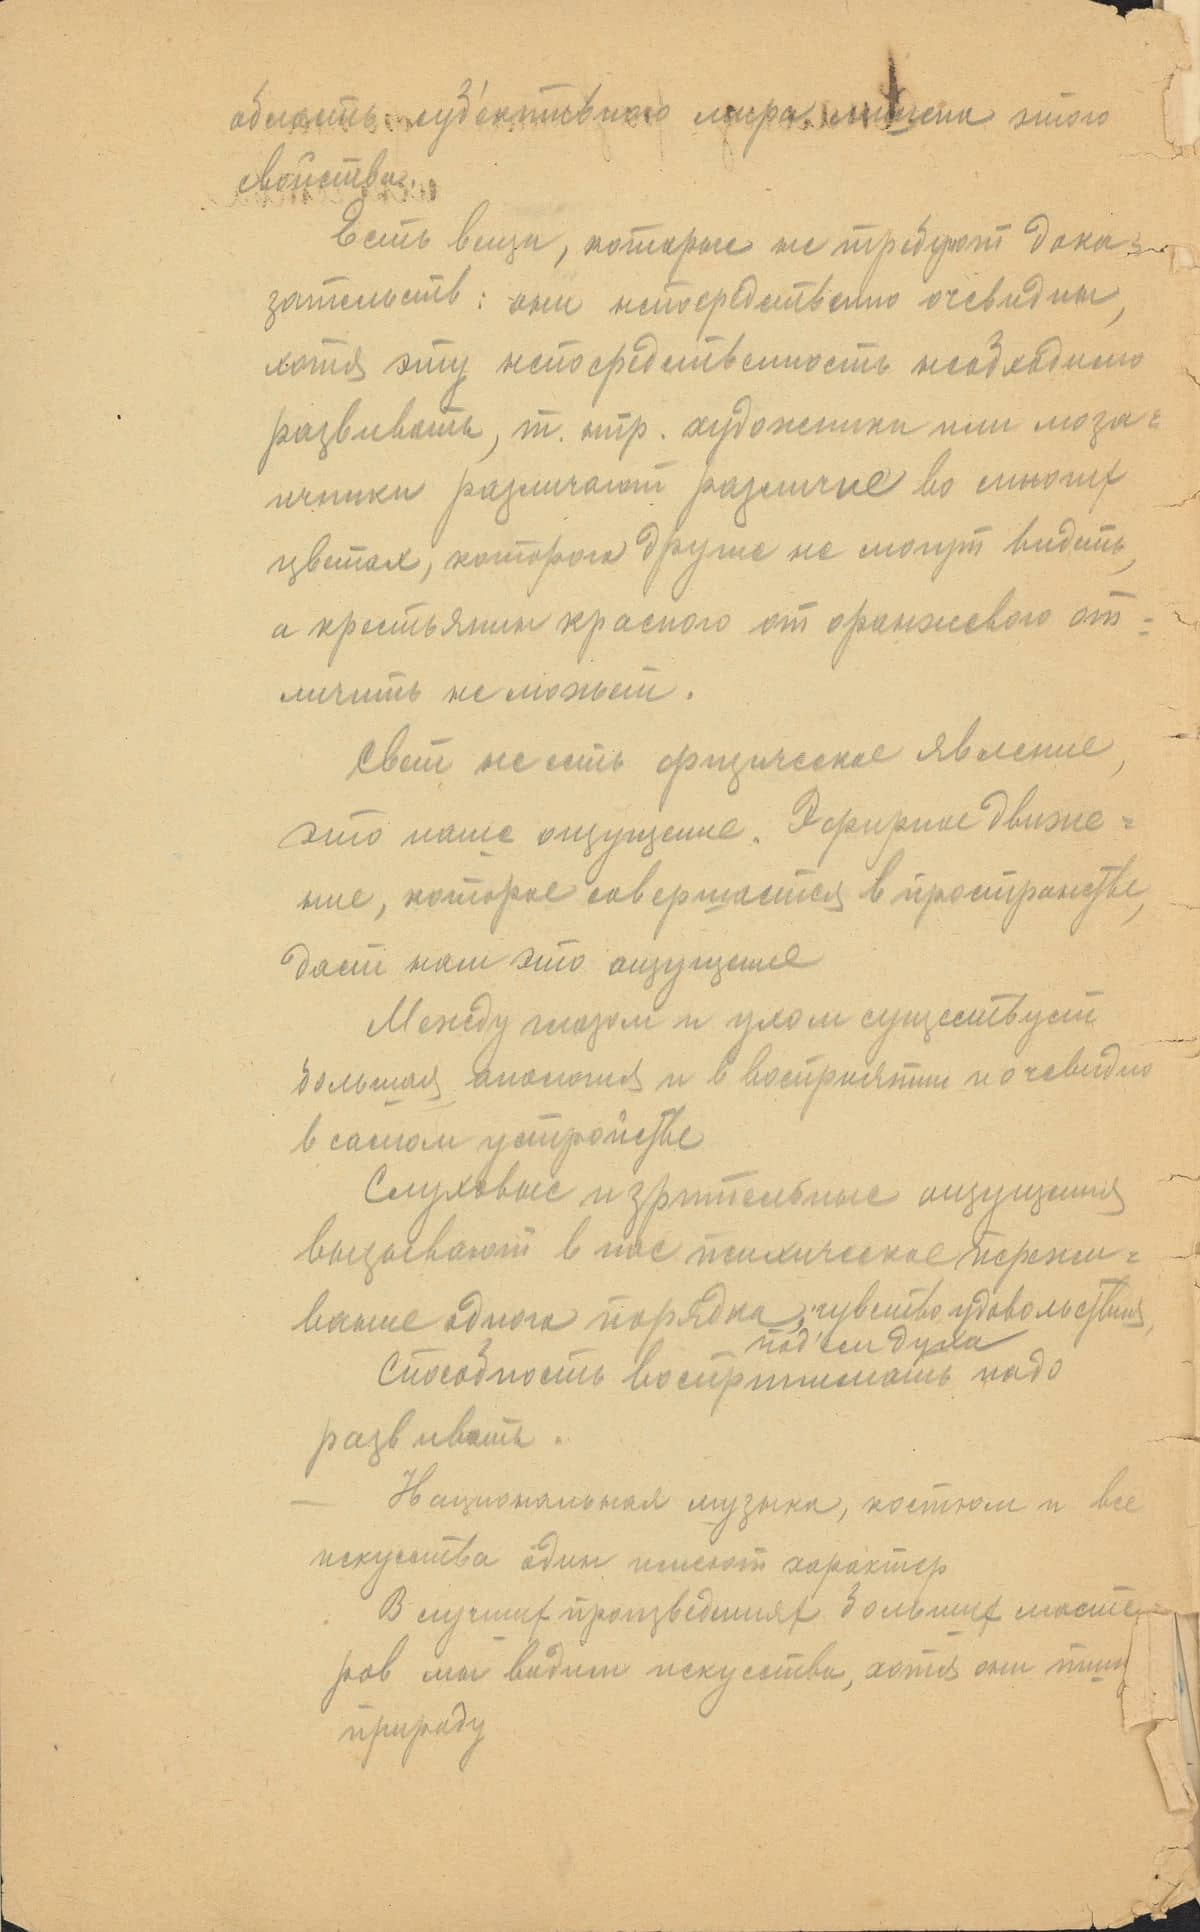 область субъективного мира лишена этого
свойства.
Есть вещи, которые не требуют дока-
зательств: они непосредственно очевидны,
хотя эту непосредственность необходимо
развивать, т. нпр. художники или моза-
ичники различают различие во многих
цветах, которого другие не могут видеть,
а крестьянин красного от оранжевого от-
личить не может.
Свет не есть физическое явление,
это наше ощущение. Эфирное движе-
ние, которое совершается в пространстве,
дает нам это ощущение
Между глазом и ухом существует
большая аналогия и в восприятии и очевидно
в самом устройстве
Слуховые и зрительные ощущения
вызывают в нас психическое пережи-
вание одного порядка, чувство удовольствия,
под'ем духа
Способность воспринимать надо
развивать.
— Национальная музыка, костюм и все
искусства один имеют характер
В лучших произведениях больших масте-
ров мы видим искусство, хотя они
природу